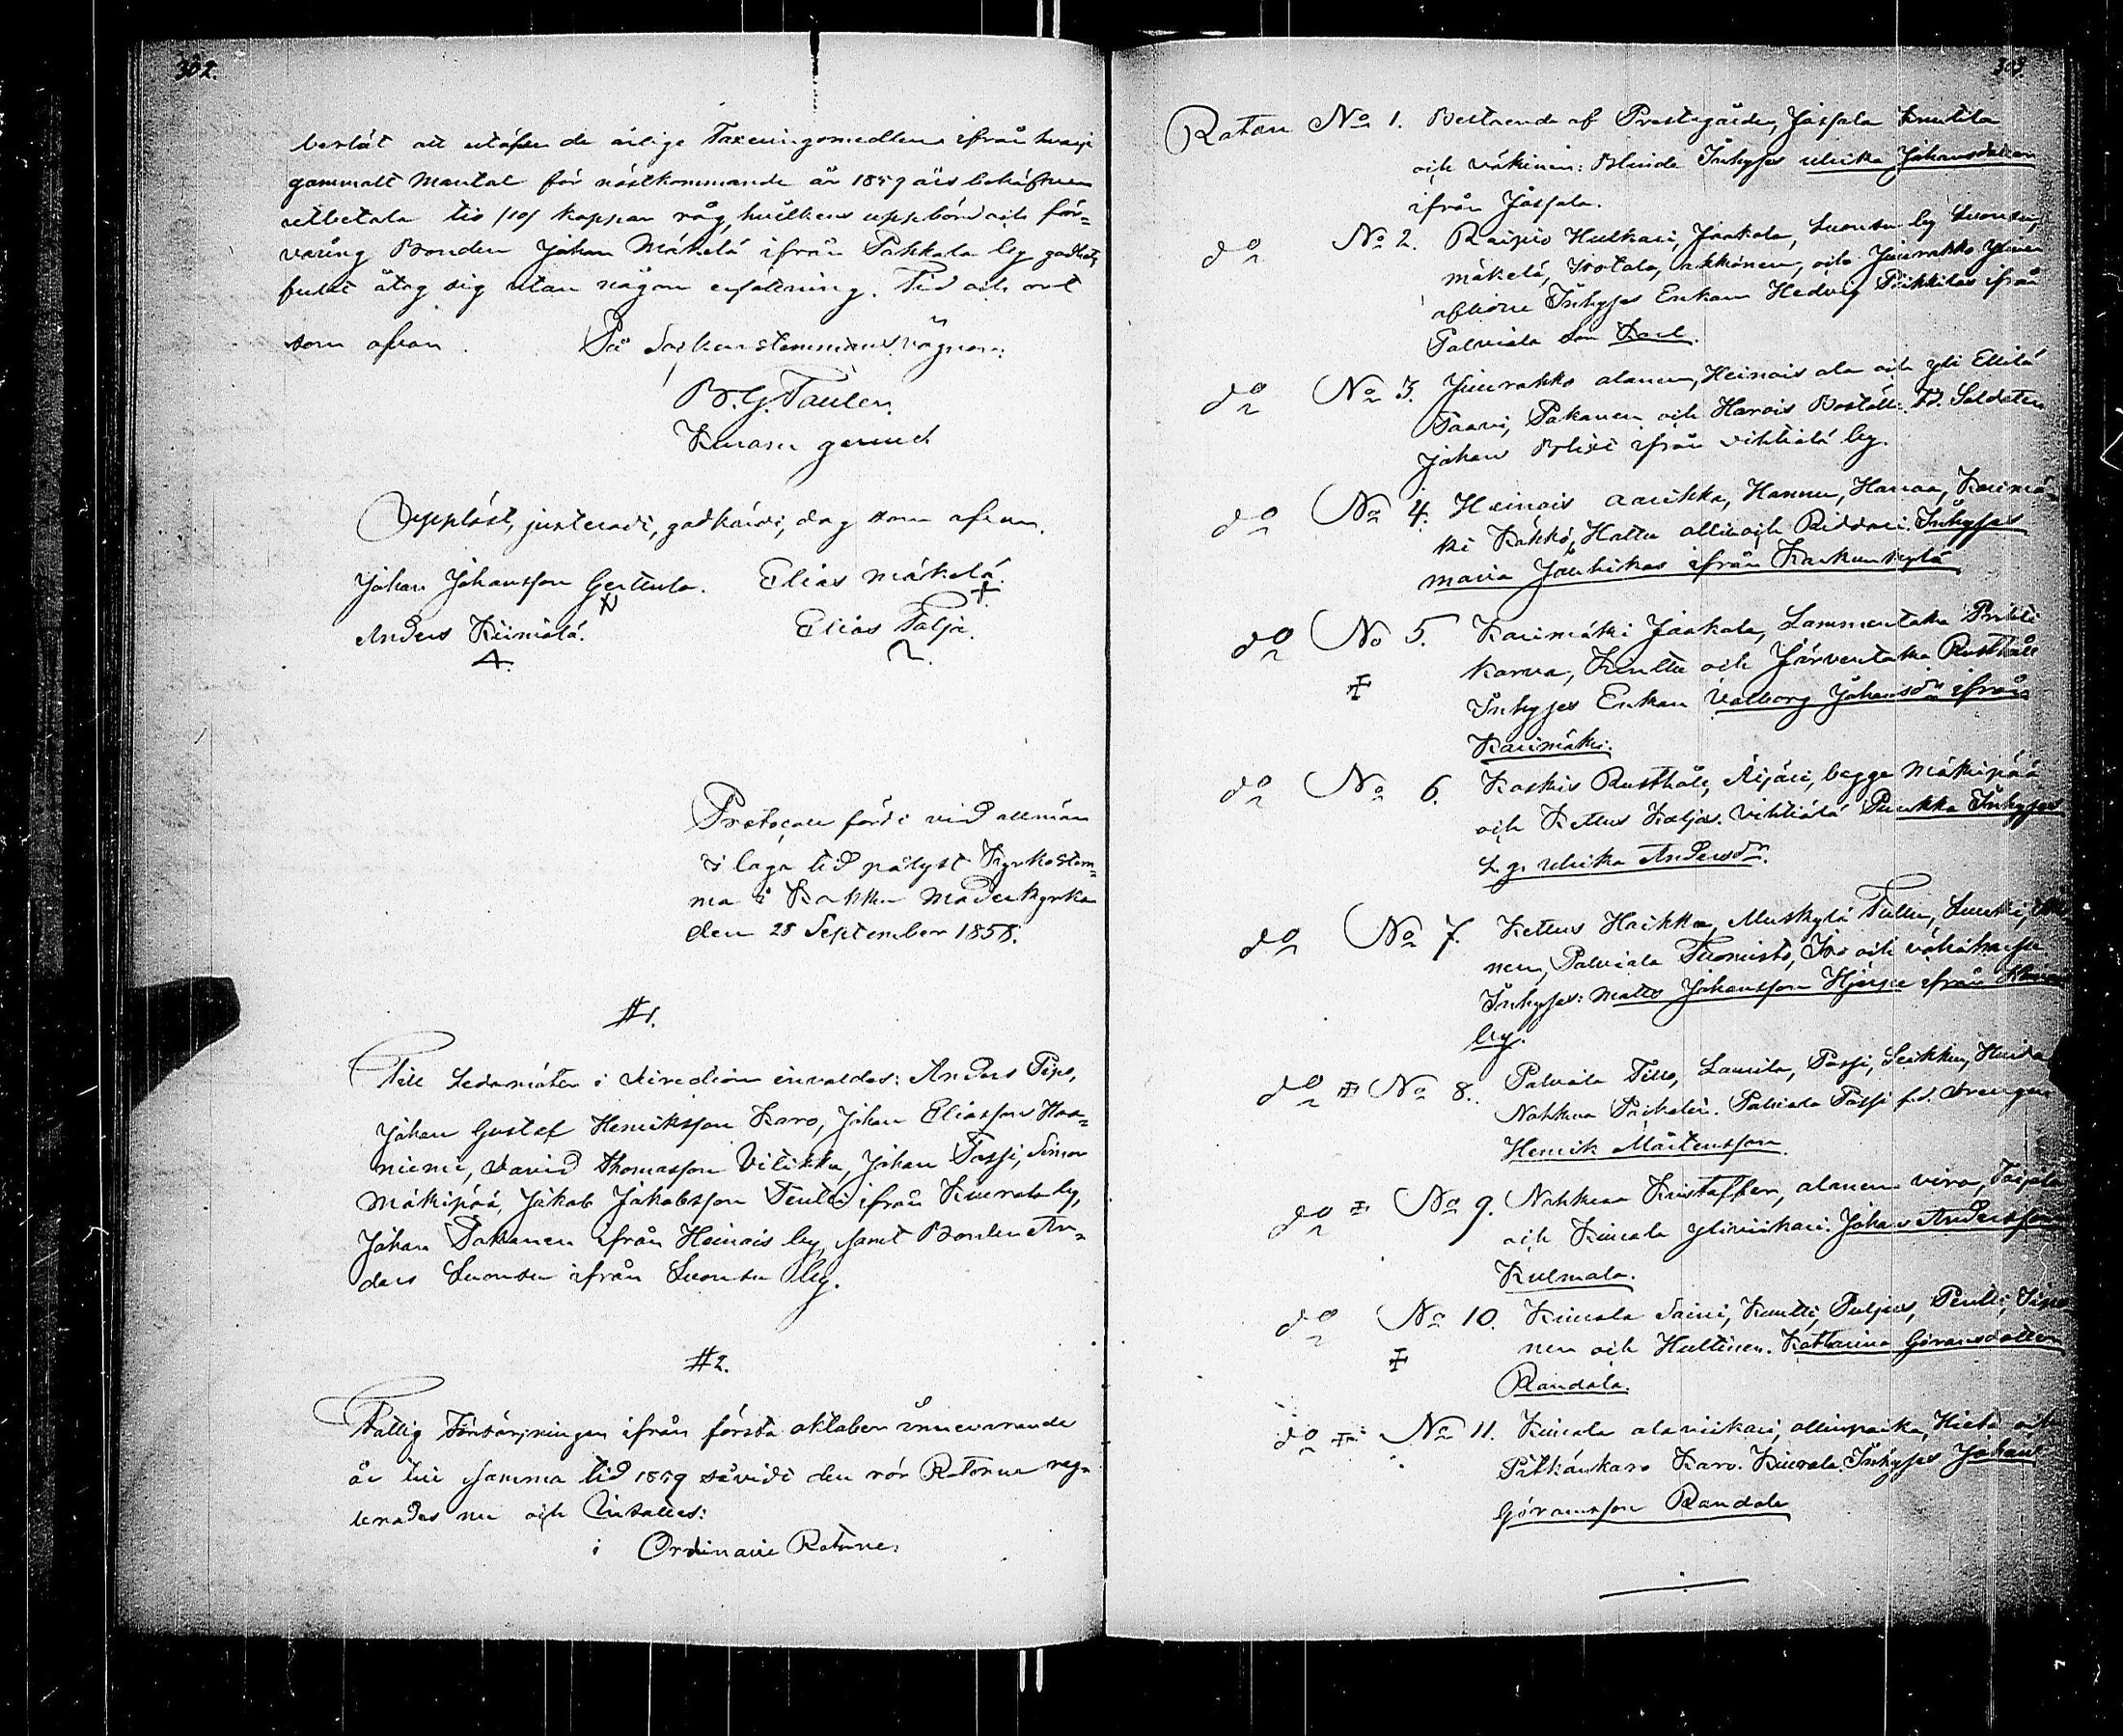 302.
beslöt att utöfver de årlige Taxeringsmedlen ifrån hvarje
gammalt Mantal för nästkommande år 1859 års behåfver
utbetala tio /10/ kappar råg, hvilkens uppbörd och för=
varing Bonden Johan Mäkelä ifrån Pakkala by godhets
fullt åtog sig utan någon ersättning. Tid och ort
som ofvan. På Sockenstemmans vägnar:
B. G. Taulér.
Kmasu gärud
Uppläst, justeradt, godkändt, dag som ofvan.
Johan Johansson Gerttula. Elias Mäkelä.
Anders Kiimalä. Elias Talja.
Protocoll fördt vid allmän
i laga tid pålyst Kyrkostäm=
ma i Kakku Moderkyrka
den 28 September 1858.
#1.
Till Ledamöter i Direction invaldes: Anders Pipo,
Johan Gustaf Henriksson Karo, Johan Eliasson Haa=
niemi, David Thomasson Vitikka, Johan Passi, Simon
Mäkipää, Jakob Jakobsson Pentti ifrån Kiurala by,
Johan Pakanen ifrån Heinois by, samt Bonden An=
ders Suontu ifrån Suontu by.
#2.
Fattig Försörjningen ifrån första oktober innevarande
år till samma tid 1859 såvidt den rör Rotorne reg=
lerades nu och intalles:
i Ordinarie Rotorne:
303.
Rotan No 1. Bestående af Prestegården, Jassala Knutila
och väkinen: Blinde Inhyses Ulrika Johansdotter
ifrån Jassala.
do No 2. Raipio Hulkari, Jaakola, Suontu by Suontu,
mäkelä, Isotalo, akkonen, och Juurakko ylinen
aflidne Inhyses Enkan Hedvig Pikkilas ifrån
Palviala Son Karl.
do No 3. Juurakko alanen, Heinois ala och yli Ellilä
Paavi, Pakanen och Harois Boställe. Fd. Soldaten
Johan Blixt ifrån Vihtiälä by.
do No 4. Heinois aarikka, Hannu, Hanaa, Karimä
ki Käkkö, Hattu olli och Riddari. Inhyses
Maria Jauhikas ifrån Karkunkylä
do No 5. Karimäki Jaakola, Lammentaka Pentti
Karva, Knuttu och Järventaka Rusthåll
Inhyses Enkan Valborg Johansdr ifrån
Karimäki.
do No 6. Koskis Rusthåll, Äijäri, begge Mäkipää
och Kettus Kaljas. Vihtiälä Punkka Inhyses
L. g. Ulrika Andersdr.
do No 7. Kettus Haikka, Muskylä Tullu, Suuki,
nen, Palviala Tuomisto, Iso och vähähassi
Inhyses: Matts Johansson Hjerpe ifrån
by.
do No 8. Palviala Tillo, Laurila, Passi, Seikku, Huida
Nohkua Päikälä. Palviala Passi f.d. Drengen
Henrik Mårtensson.
do No 9. Nohkua Kristoffer, alanen viro, Taipola
och Kiurala yliniikari. Johan Andersson
Kulmala.
do No 10. Kiurala Saini, Knutti, Puljus, Pentti, Sipo
nen och Hultinen. Katharina Göransdotter
Randala.
do No 11. Kiurala alaniikari, ollinpaika, Hietä och
Pitkänkaro Karo. Kiurala. Inhyses Johan
Göransson Randala